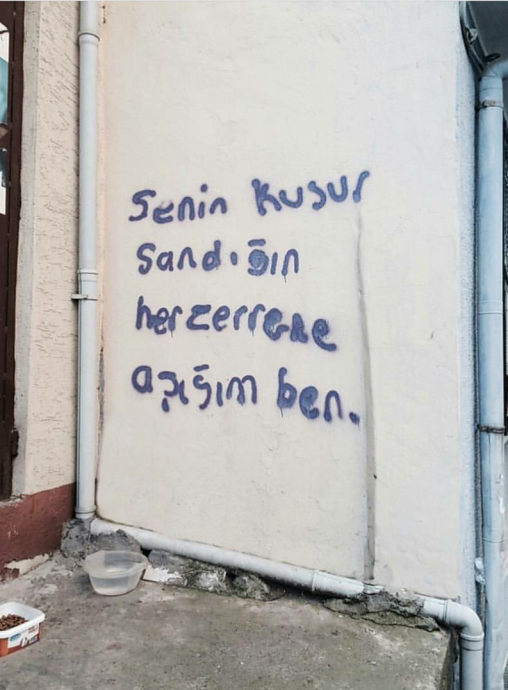 Senin kusur
Sandığın
her zerrene
aşığım ben.